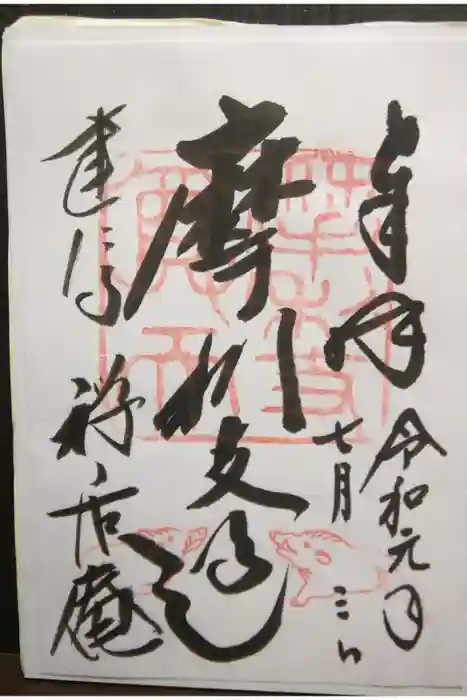 奉拝
令和元年
七月三日
摩利支
建仁寺
禅居庵